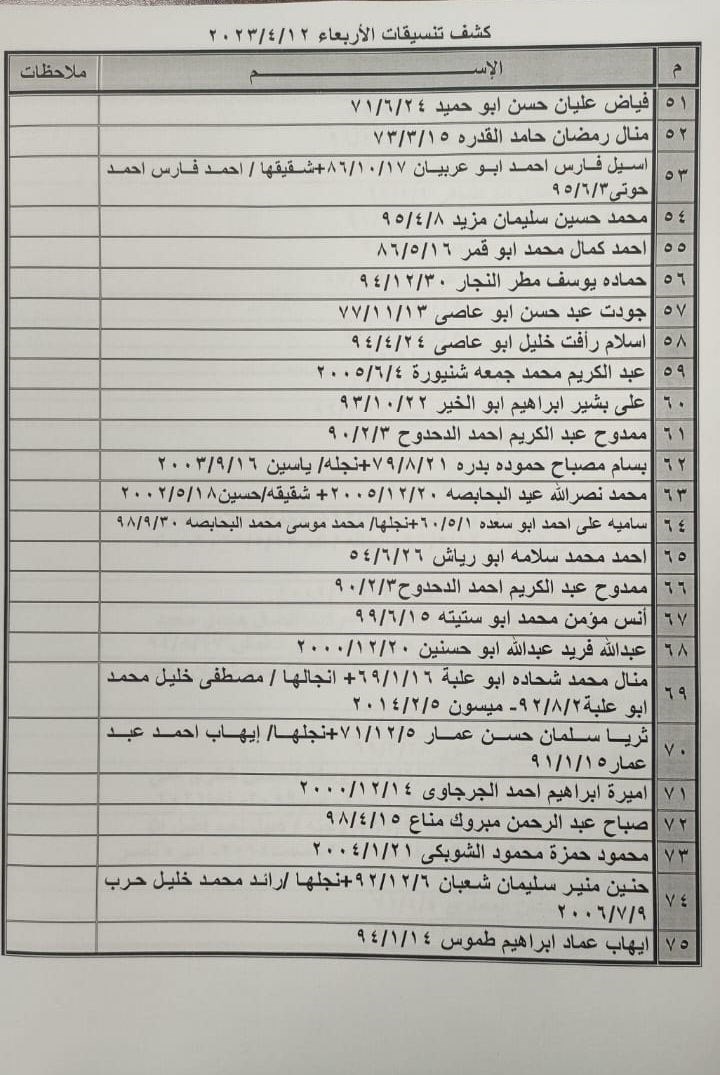 كشف تنسيقات الأربعاء ٢٠٢٣/٤/١٢
م الإســـــــــــم ملاحظات
٥١ فياض عليان حسن ابو حميد ٧١/٦/٢٤
٥٢ منال رمضان حامد القدره ٧٣/٣/١٥
٥٣ اسيل فارس احمد ابو عربيان ٨٦/١٠/١٧+شقيقها / احمد فارس احمد
حوتى٩٥/٦/٣
٥٤ محمد حسين سليمان مزيد ٩٥/٤/٨
٥٥ احمد كمال محمد ابو قمر ٨٦/٥/١٦
٥٦ حماده يوسف مطر النجار ٩٤/١٢/٣٠
٥٧ جودت عبد حسن ابو عاصى ٧٧/١١/١٣
٥٨ اسلام رأفت خليل ابو عاصى ٩٤/٤/٢٤
٥٩ عبد الكريم محمد جمعه شنيورة ٢٠٠٥/٦/٤
٦٠ على بشير ابراهيم ابو الخير ٩٣/١٠/٢٢
٦١ ممدوح عبد الكريم احمد الدحدوح ٩٠/٢/٣
٦٢ بسام مصباح حموده بدره ٧٩/٨/٢١+نجله/ ياسين ٢٠٠٣/٩/١٦
٦٣ محمد نصرالله عيد البحابصه ٢٠٠٥/١٢/٢٠+ شقيقه/حسين٢٠٠٢/٥/١٨
٦٤ ساميه على احمد ابو سعده ٦٠/٥/١+نجلها/ محمد موسى محمد البحابصه ٩٨/٩/٣٠
٦٥ احمد محمد سلامه ابو رياش ٥٤/٦/٢٦
٦٦ ممدوح عبد الكريم احمد الدحدوح٩٠/٢/٣
٦٧ أنس مؤمن محمد ابو ستيته ٩٩/٦/١٥
٦٨ عبدالله فريد عبدالله ابو حسنين ٢٠٠٠/١٢/٢٠
٦٩ منال محمد شحاده ابو علبة ٦٩/١/١٦+ انجالها / مصطفى خليل محمد
ابو علبة٩٢/٨/٢- ميسون ٢٠١٤/٢/٥
٧٠ ثريا سلمان حسن عمار ٧١/١٢/٥+نجلها/ إيهاب احمد عبد
عمار٩١/١/١٥
٧١ اميرة ابراهيم احمد الجرجاوى ٢٠٠٠/١٢/١٤
٧٢ صباح عبد الرحمن مبروك مناع ٩٨/٤/١٥
٧٣ محمود حمزة محمود الشوبكى ٢٠٠٤/١/٢١
٧٤ حنين منير سليمان شعبان ٩٢/١٢/٦+نجلها /رائد محمد خليل حرب
٢٠٠٦/٧/٩
٧٥ ايهاب عماد ابراهيم طموس ٩٤/١/١٤